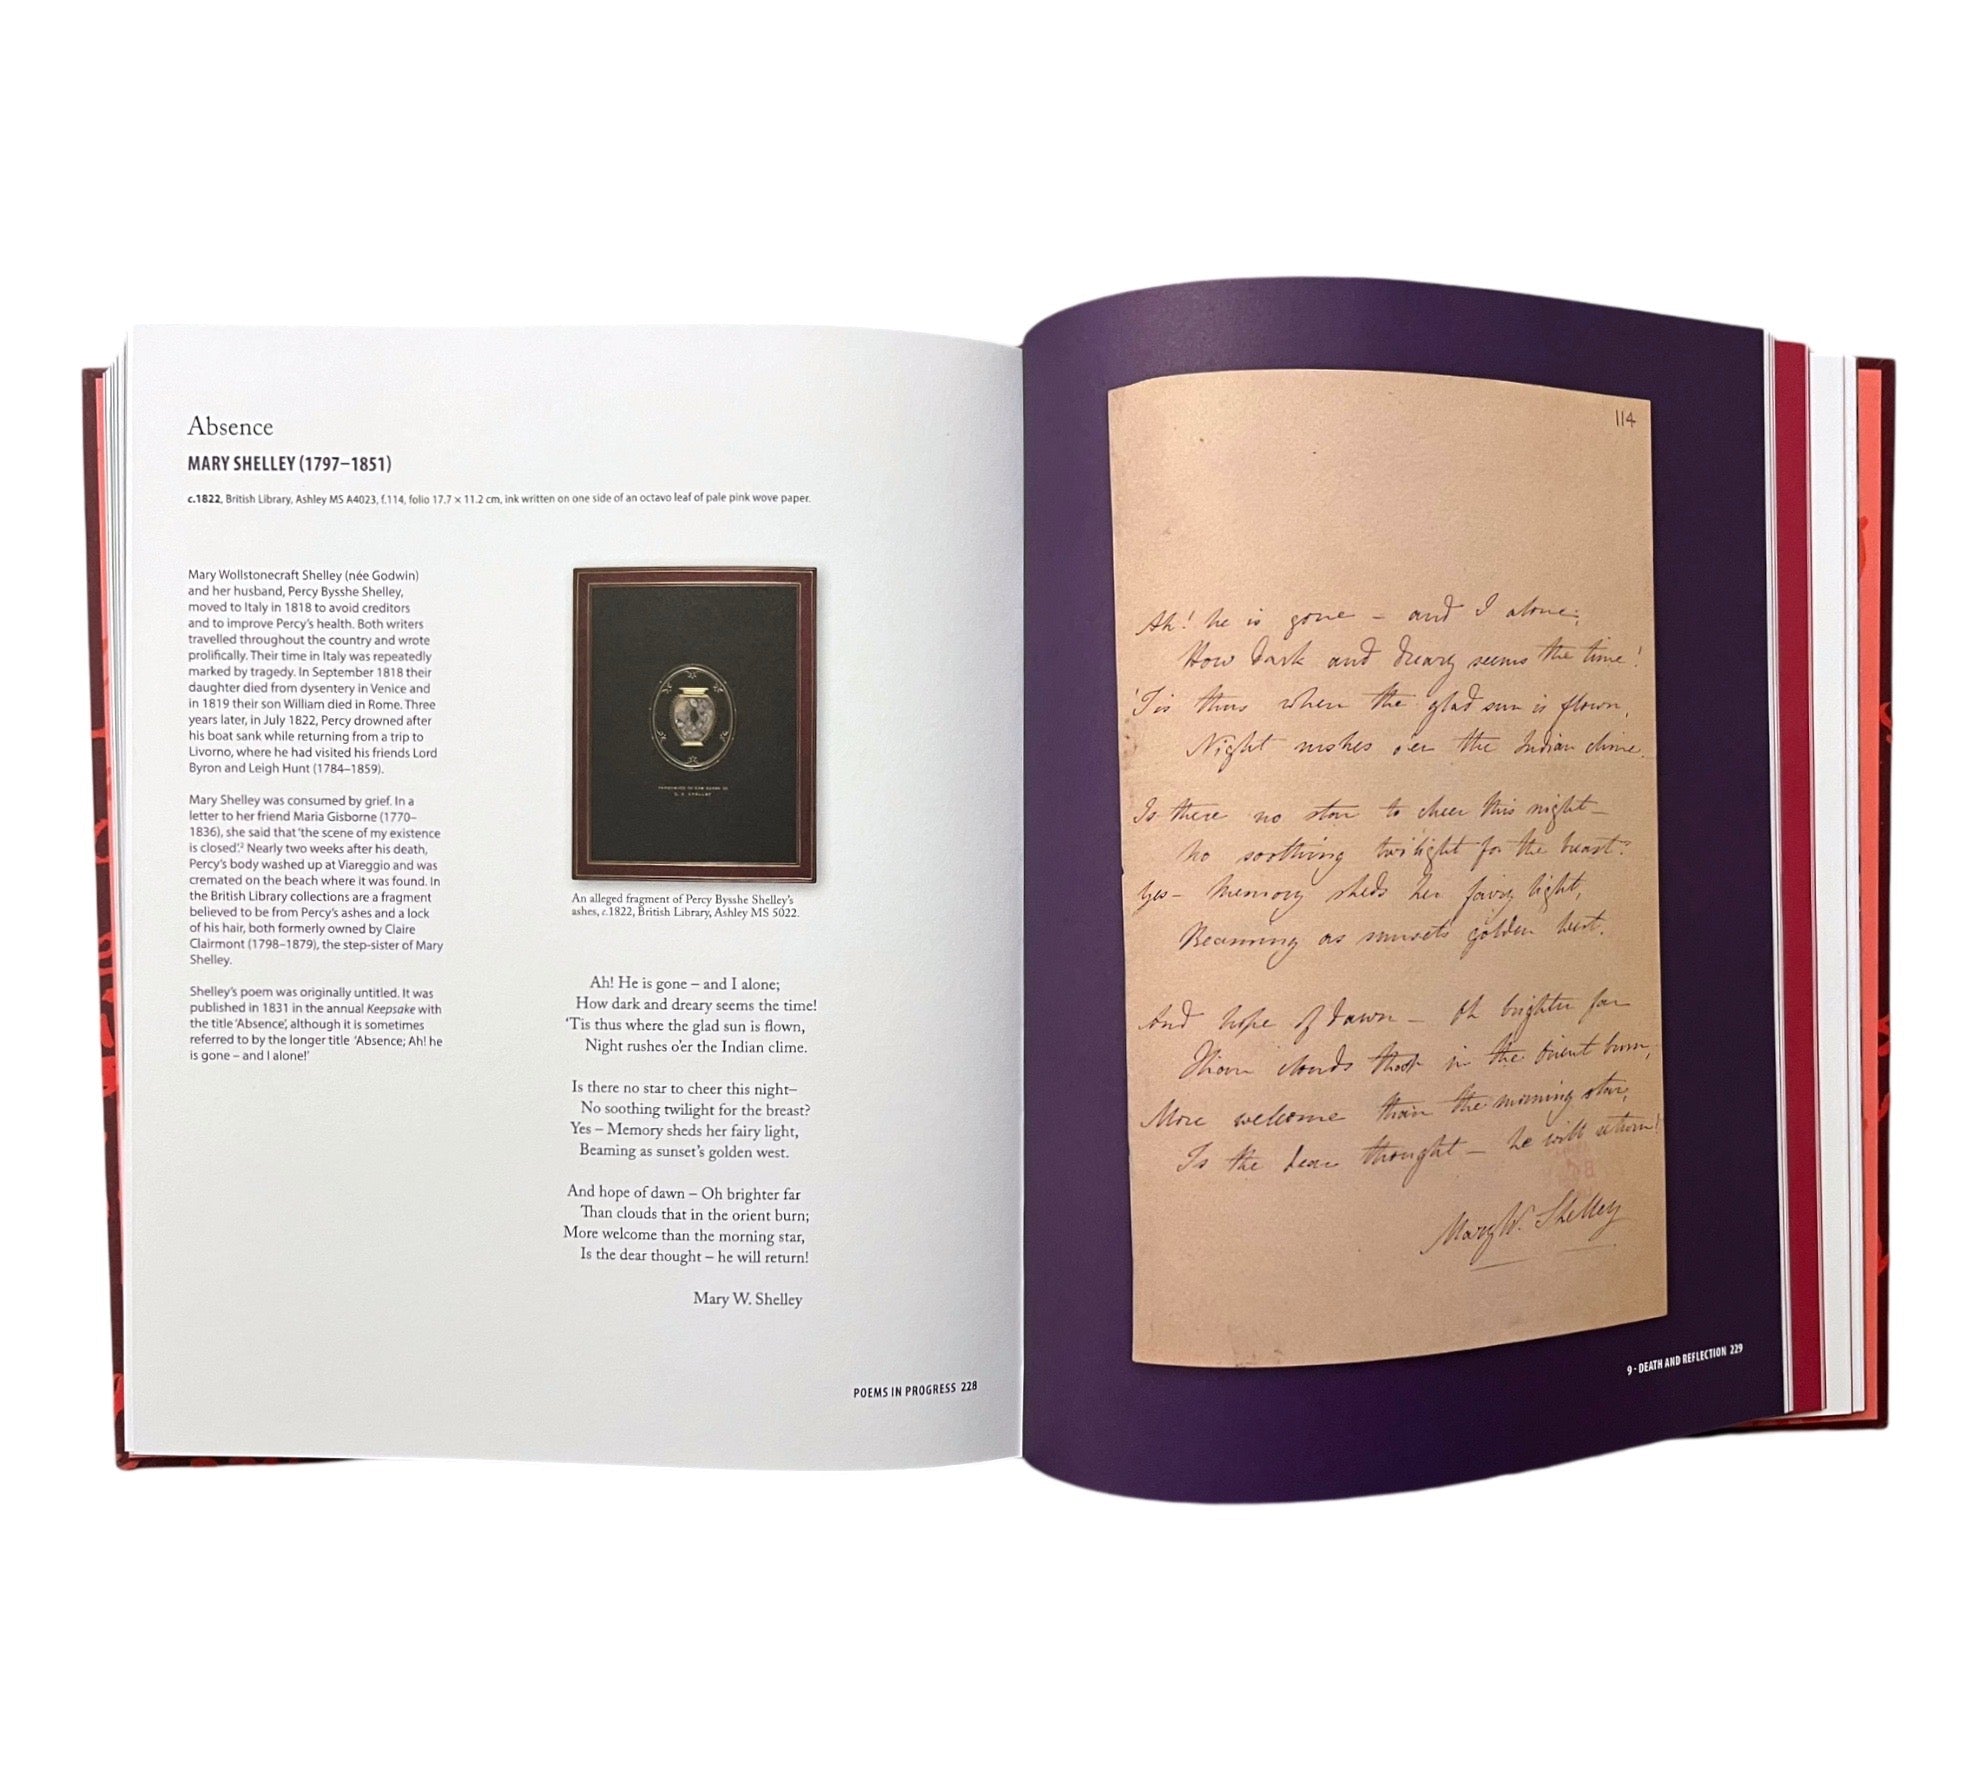 Absence
MARY SHELLEY (1797–1851)
c.1822, British Library, Ashley MS A4023, f.114, folio 17.7 × 11.2 cm, ink written on one side of an octavo leaf of pale pink wove paper.
Mary Wollstonecraft Shelley (née Godwin)
and her husband, Percy Bysshe Shelley,
moved to Italy in 1818 to avoid creditors
and to improve Percy's health. Both writers
travelled throughout the country and wrote
prolifically. Their time in Italy was repeatedly
marked by tragedy. In September 1818 their
daughter died from dysentery in Venice and
in 1819 their son William died in Rome. Three
years later, in July 1822, Percy drowned after
his boat sank while returning from a trip to
Livorno, where he had visited his friends Lord
Byron and Leigh Hunt (1784–1859).
Mary Shelley was consumed by grief. In a
letter to her friend Maria Gisborne (1770–
1836), she said that 'the scene of my existence
is closed'.² Nearly two weeks after his death,
Percy's body washed up at Viareggio and was
cremated on the beach where it was found. In
the British Library collections are a fragment
believed to be from Percy's ashes and a lock
of his hair, both formerly owned by Claire
Clairmont (1798–1879), the step-sister of Mary
Shelley.
Shelley's poem was originally untitled. It was
published in 1831 in the annual Keepsake with
the title 'Absence', although it is sometimes
referred to by the longer title 'Absence; Ah! he
is gone – and I alone!'
An alleged fragment of Percy Bysshe Shelley's
ashes, c.1822, British Library, Ashley MS 5022.
Ah! He is gone – and I alone;
How dark and dreary seems the time!
'Tis thus where the glad sun is flown,
Night rushes o'er the Indian clime.
Is there no star to cheer this night–
No soothing twilight for the breast?
Yes – Memory sheds her fairy light,
Beaming as sunset's golden west.
And hope of dawn – Oh brighter far
Than clouds that in the orient burn;
More welcome than the morning star,
Is the dear thought – he will return!
Mary W. Shelley
POEMS IN PROGRESS 228
114
Ah! he is gone – and I alone;
How dark and dreary seems the time!
'Tis thus when the glad sun is flown,
Night rushes o'er the Indian clime
Is there no star to cheer this night–
No soothing twilight for the breast?
Yes – Memory sheds her fairy light,
Beaming as sunsets golden west.
And hope of dawn – Oh brighter far
Than clouds that in the orient burn;
More welcome than the morning star,
Is the dear thought – he will return!
Mary W. Shelley
9 - DEATH AND REFLECTION 229